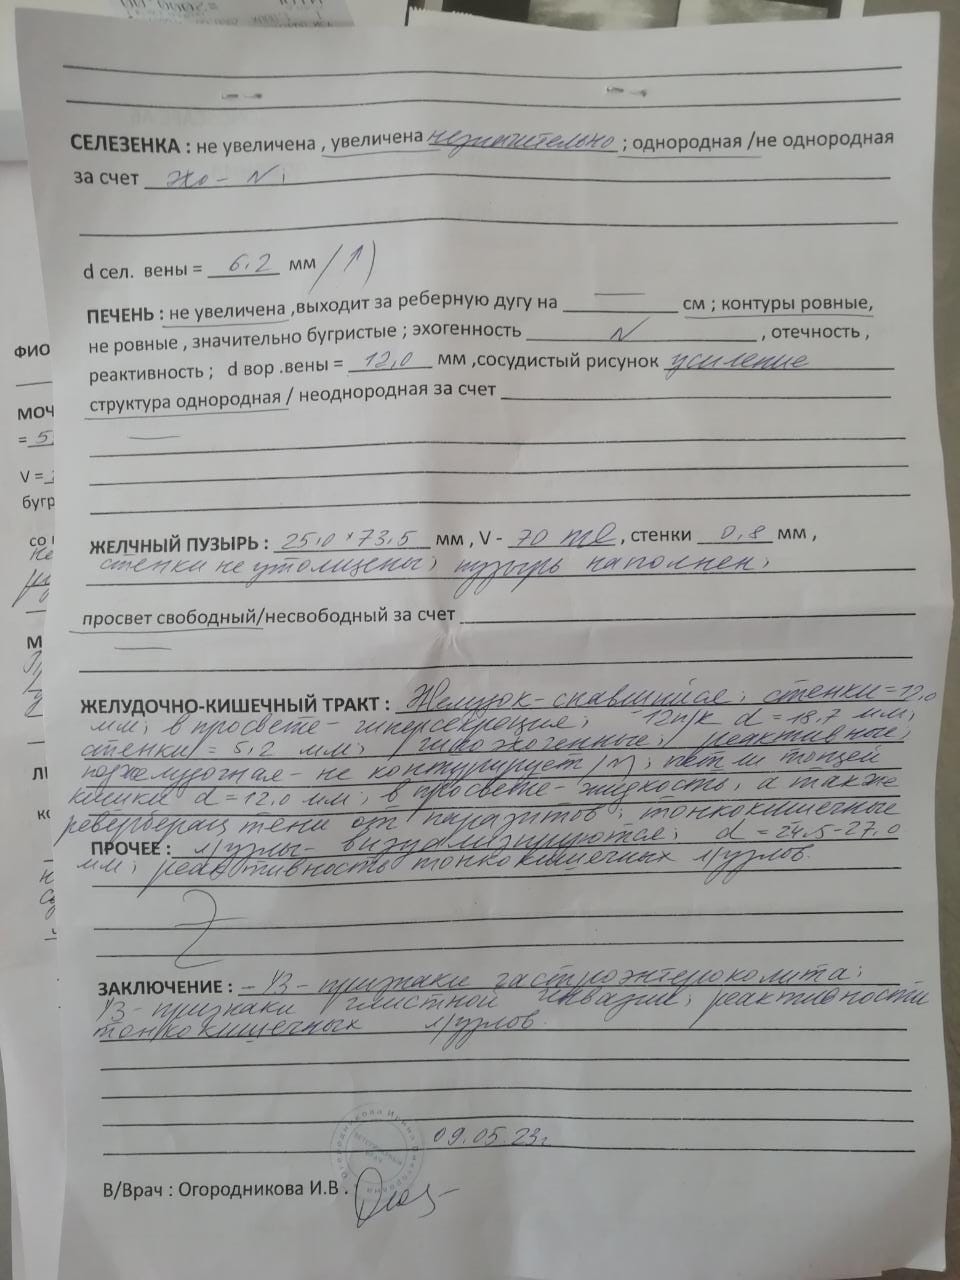 СЕЛЕЗЕНКА : не увеличена , увеличена незначительно ; однородная /не однородная
за счет эхо - N ;
d сел. вены = 6,2 мм (↑)
ПЕЧЕНЬ : не увеличена ,выходит за реберную дугу на — см ; контуры ровные,
не ровные , значительно бугристые ; эхогенность N , отечность ,
реактивность ; d вор .вены = 12,0 мм ,сосудистый рисунок усиление
структура однородная / неоднородная за счет
—
ЖЕЛЧНЫЙ ПУЗЫРЬ : 25,0 × 73,5 мм , V - 70 ml , стенки 0,8 мм ,
стенки не утолщены; пузырь наполнен;
просвет свободный/несвободный за счет
—
ЖЕЛУДОЧНО-КИШЕЧНЫЙ ТРАКТ : Желудок - спавшийся; стенки = 12,0
мм; в просвете - гиперсекреция; 12п/к d = 18,7 мм;
стенки = 5,2 мм; гипоэхогенные; реактивные;
поджелудочная - не контурирует (N); петли тощей
кишки d = 12,0 мм; в просвете - жидкость, а также
ревербера́ц тени от паразитов; тонкокишечные
ПРОЧЕЕ : л/узлы - визуализируются; d = 24,5 - 27,0
мм; реактивность тонкокишечных л/узлов.
ЗАКЛЮЧЕНИЕ : - УЗ - признаки гастроэнтероколита;
УЗ - признаки глистной инвазии; реактивности
тонкокишечных л/узлов.
Огородникова Ирина
ВЕТЕРИНАРНЫЙ
ВРАЧ
09.05.23г.
В/Врач : Огородникова И.В .
ФИО
МОЧ
= 5,
V =
бугр
со
М